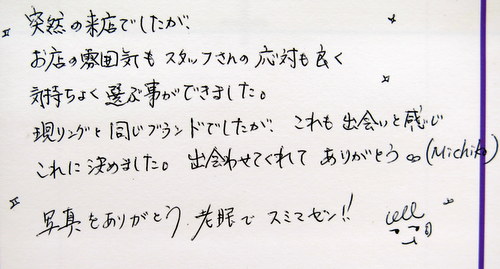 突然の来店でしたが、
お店の雰囲気もスタッフさんの応対も良く
気持ちよく選ぶ事ができました。
現リングと同じブランドでしたが、これも出会いと感じ
これに決めました。出会わせてくれてありがとう∞(Michiko)
写真をありがとう、老眼でスミマセン!!